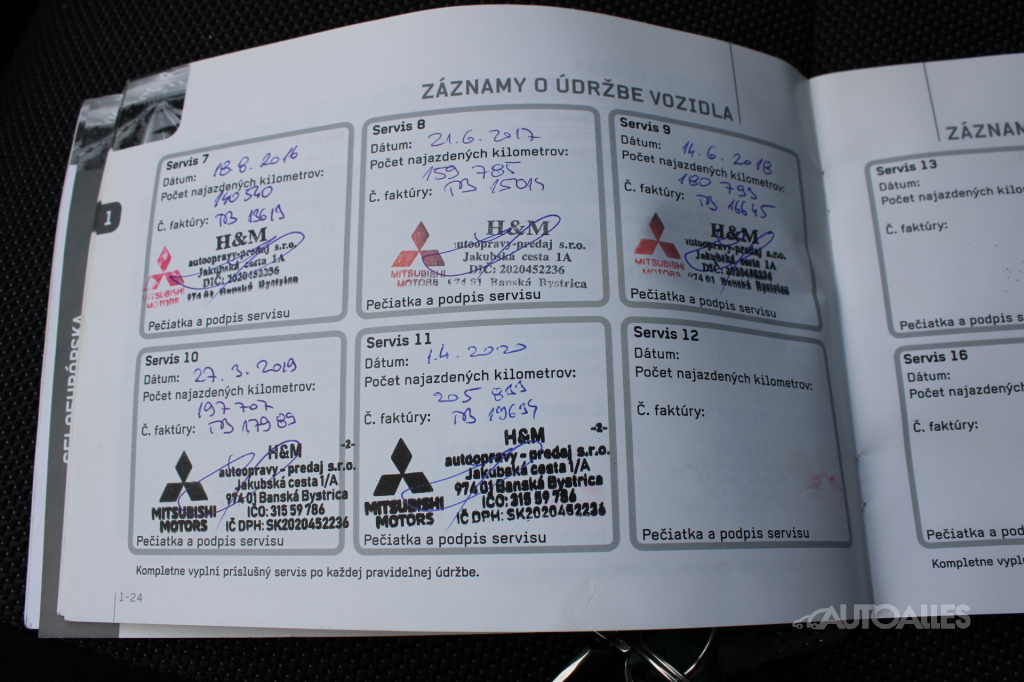 ZÁZNAMY O ÚDRŽBE VOZIDLA
Servis 7
Dátum: 18.8.2016
Počet najazdených kilometrov:
140 540
Č. faktúry: TB 13619
H&M
autoopravy-predaj s.r.o.
Jakubská cesta 1A
DIČ: 2020452236
974 01 Banská Bystrica
MITSUBISHI
MOTORS
Pečiatka a podpis servisu
Servis 8
Dátum: 21.6.2017
Počet najazdených kilometrov:
159 785
Č. faktúry: TB 15014
H&M
autoopravy-predaj s.r.o.
Jakubská cesta 1A
DIČ: 2020452236
974 01 Banská Bystrica
MITSUBISHI
MOTORS
Pečiatka a podpis servisu
Servis 9
Dátum: 14.6.2018
Počet najazdených kilometrov:
180 793
Č. faktúry: TB 16645
H&M
autoopravy-predaj s.r.o.
Jakubská cesta 1A
DIČ: 2020452236
974 01 Banská Bystrica
MITSUBISHI
MOTORS
Pečiatka a podpis servisu
Servis 10
Dátum: 27.3.2019
Počet najazdených kilometrov:
197 707
Č. faktúry: TB 17989
-2-
H&M
autoopravy - predaj s.r.o.
Jakubská cesta 1/A
974 01 Banská Bystrica
IČO: 315 59 786
IČ DPH: SK2020452236
MITSUBISHI
MOTORS
Pečiatka a podpis servisu
Servis 11
Dátum: 1.4.2020
Počet najazdených kilometrov:
205 833
Č. faktúry: TB 19634
-2-
H&M
autoopravy - predaj s.r.o.
Jakubská cesta 1/A
974 01 Banská Bystrica
IČO: 315 59 786
IČ DPH: SK2020452236
MITSUBISHI
MOTORS
Pečiatka a podpis servisu
Servis 12
Dátum:
Počet najazdených kilometrov:
Č. faktúry:
Pečiatka a podpis servisu
Kompletne vyplní príslušný servis po každej pravidelnej údržbe.
1-24
1
ZÁZNAM
Servis 13
Dátum:
Počet najazdených kilo
Č. faktúry:
Pečiatka a podpis s
Servis 16
Dátum:
Počet najazdených
Č. faktúry:
Pečiatka a podpis
Kompletne vypl
AUTOALLES